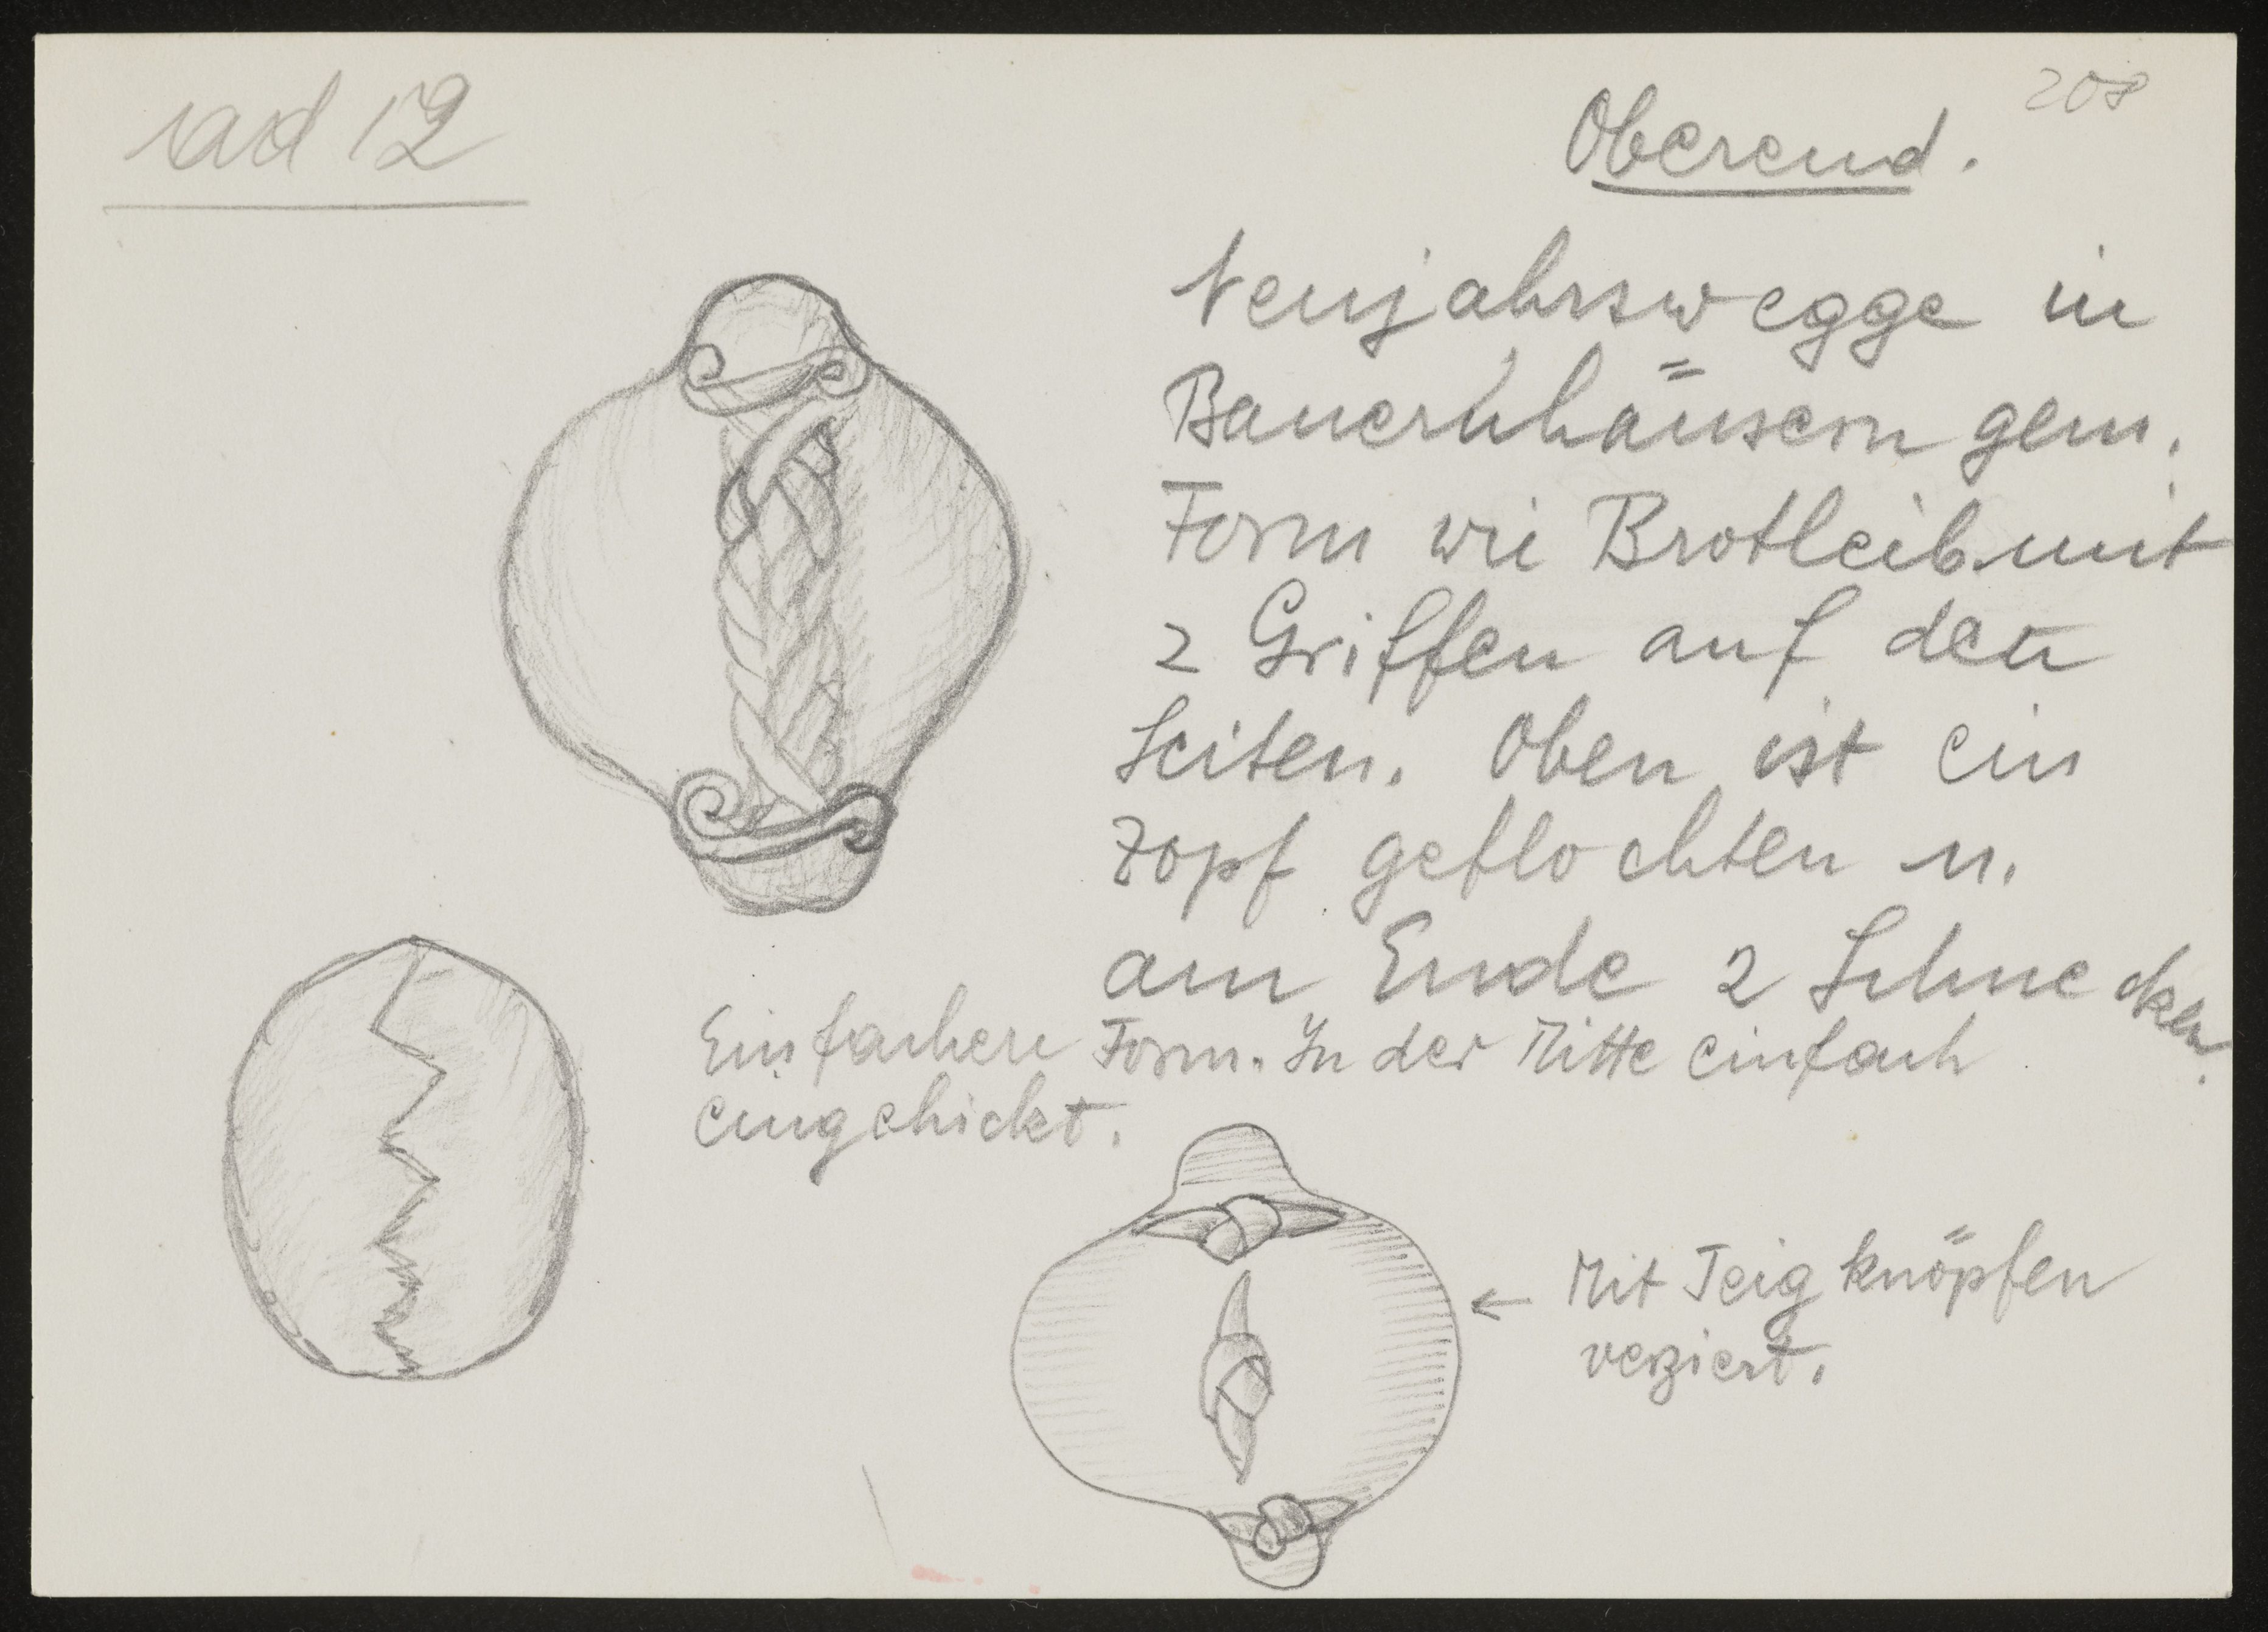 ad 12
208
Oberend.
Neujahrswegge in
Bauernhäusern gem.
Form wie Brotleib mit
2 Griffen auf den
Seiten. Oben ist ein
Zopf geflochten u.
am Ende 2 Schnecken.
Einfachere Form. In der Mitte einfach
eingehickt.
← Mit Teigknöpfen
verziert.